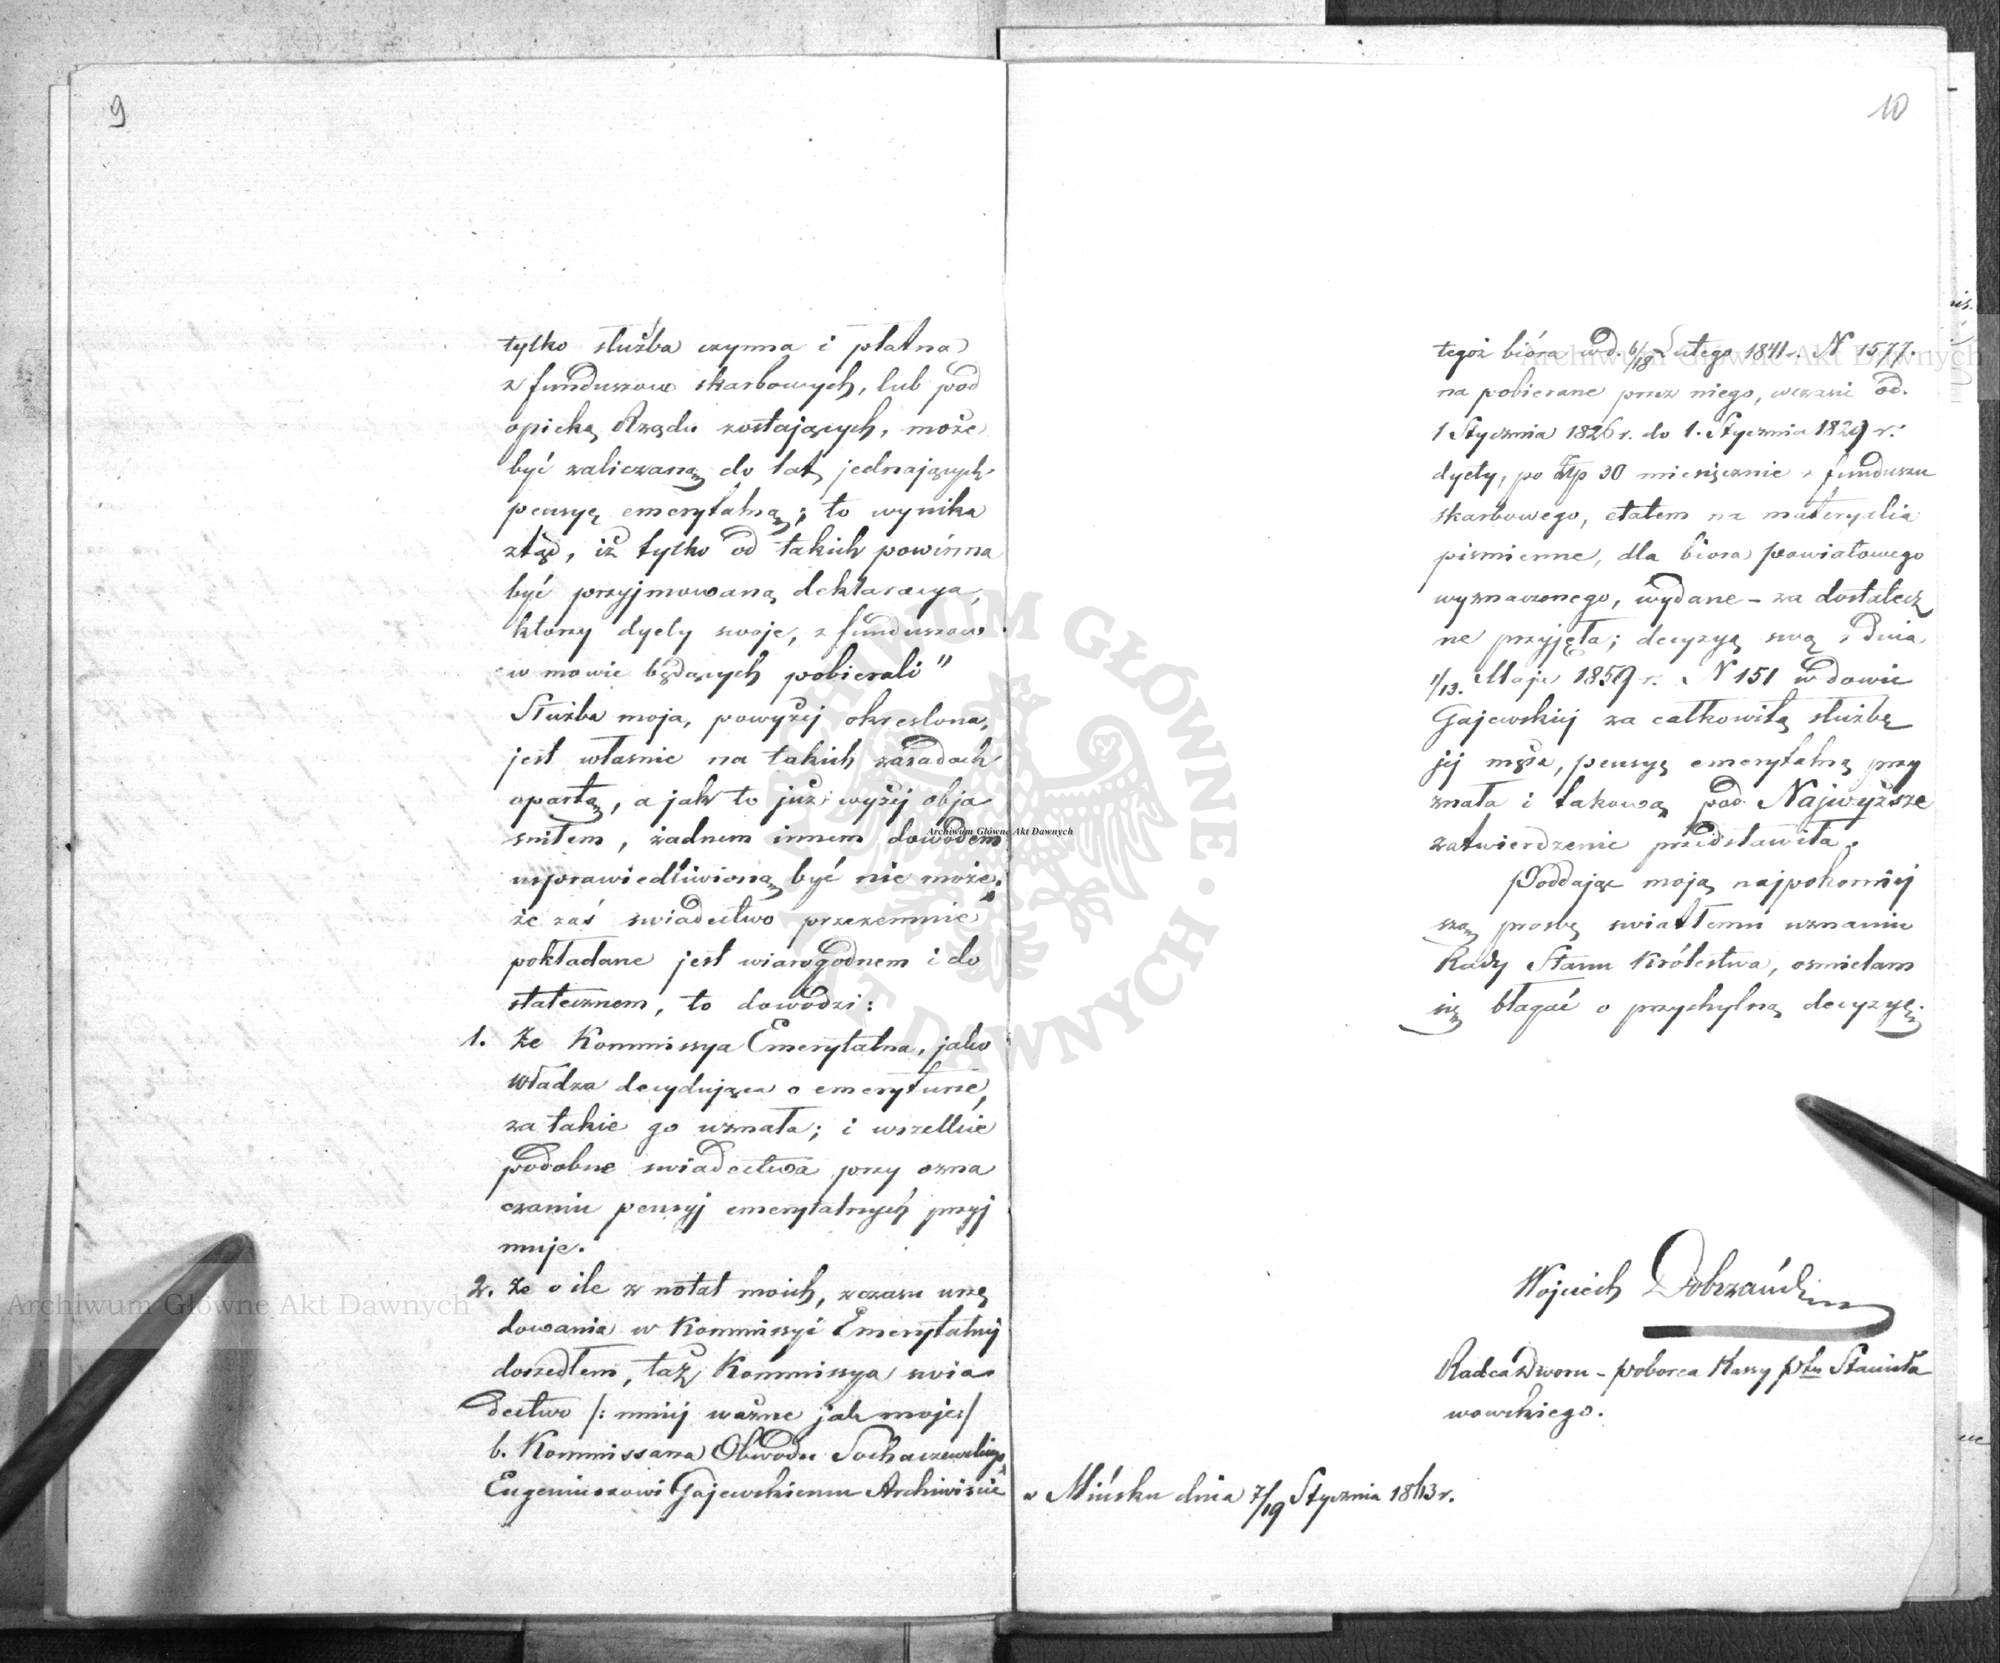 9
tylko służba czynna i płatna
z funduszow skarbowych, lub pod
opieką Rządu zostających, może
być zaliczaną do lat jednających
pensyę emerytalną; to wynika
ztąd, iż tylko od takich powinna
być przyjmowaną deklaracya,
ktorzy dyety swoje, z funduszow
w mowie będących pobierali"
Służba moja, powyżej okreslona,
jest własnie na takich zasadach
opartą, a jak to już wyżej obja
sniłem, żadnem innem dowodem
usprawiedliwioną być nie może;
że zaś swiadectwo przezemnie
pokładane jest wiarogodnem i do
statecznem, to dowodzi:
1. Że Kommissya Emerytalna, jako
władza decydująca o emeryturze,
za takie go uznała; i wszelkie
podobne swiadectwa przy ozna
czaniu pensyj emerytalnych przyj
muje.
2. Że o ile z notat moich, z czasu urzę
dowania w Kommissyi Emerytalnej
doszedłem, taż Kommissya swia
dectwo /: mniej ważne jak moje :/
b. Kommissarza Obwodu Sochaczewskiego
Eugeniuszowi Gajewskiemu Archiwiscie
10
tegoż bióra wd. 6/18 Lutego 1841 r. N 1577.
na pobierane przez niego, wczasie od.
1 Stycznia 1826 r. do 1. Stycznia 1829 r.
dyety, po Złp 30 miesięcznie z funduszu
skarbowego, etatem na materyalia
pismienne, dla biora powiatowego
wyznaczonego, wydane – za dostatecz
ne przyjęła; decyzyą swą z dnia
1/13. Maja 1859 r. N 151 wdowie
Gajewskiej za całkowitą służbę
jej męża, pensyę emerytalną przy
znała i takową pod Najwyższe
zatwierdzenie przedstawiła.
Poddając moją najpokorniej
szą prosbę swiatłemu uznaniu
Rady Stanu Królestwa, osmielam
się błagać o przychylną decyzyę.
Wojciech Dobrzański
Radca Dworu – Poborca Kassy Ptu Stanisła
wowskiego.
w Mińsku dnia 7/19 Stycznia 1863 r.
Archiwum Główne Akt Dawnych
Archiwum Główne Akt Dawnych
Archiwum Główne Akt Dawnych
ARCHIWUM GŁÓWNE AKT DAWNYCH